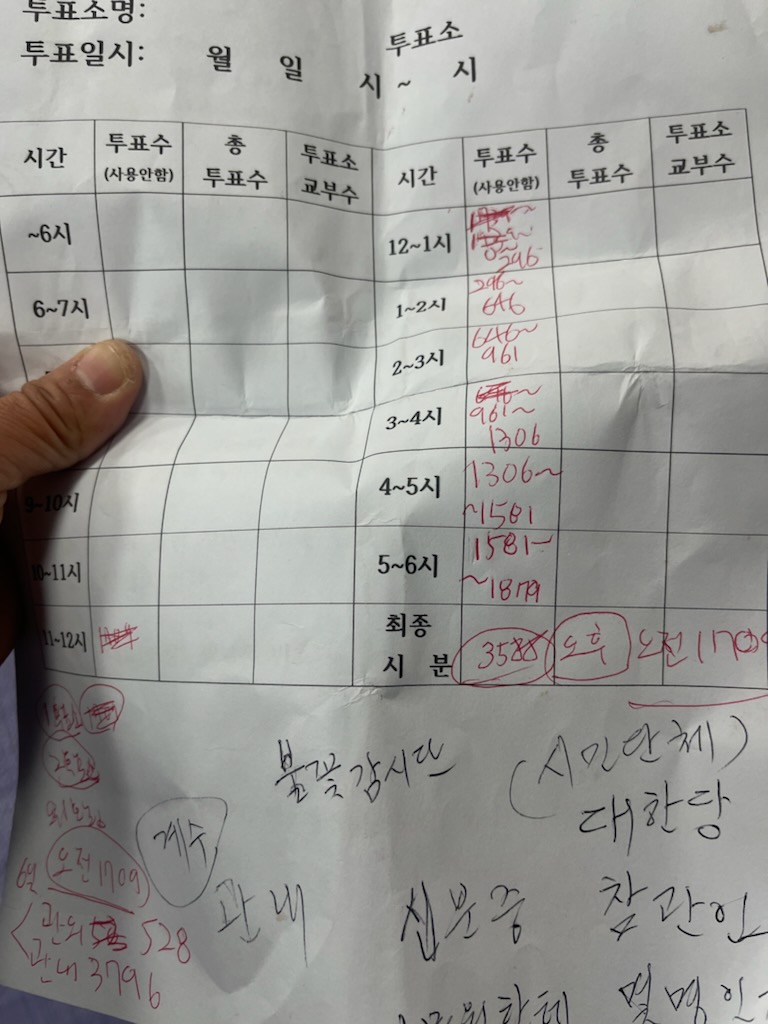 투표소명: 투표소
투표일시: 월 일 시 ~ 시
시간 투표수 (사용안함) 총 투표수 투표소 교부수 시간 투표수 (사용안함) 총 투표수 투표소 교부수
~6시 12~1시 0~ 296
6~7시 1~2시 296~ 646
2~3시 646~ 961
3~4시 961~ 1306
9~10시 4~5시 1306~ ~1581
10~11시 5~6시 1581~ ~1879
11~12시 최종 시 분 3588 오후 오전 1709
불꽃감시단 (시민단체)
대한당
계수
오전 1709
관외 528
관내 3796
관내 신분증 참관인